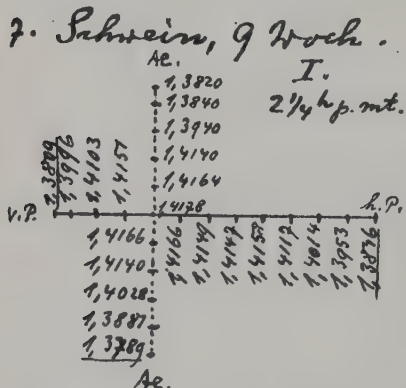 7. Schwein, 9 Woch.
I.
2 1/4 h p. mt.
Ae.
1,3820
1,3840
1,3940
1,4140
1,4164
1,4178
v.P.
1,3809
1,3996
1,4103
1,4151
h.P.
1,4166
1,4149
1,4147
1,4151
1,4117
1,4014
1,3953
1,3876
1,4166
1,4140
1,4028
1,3887
1,3789
Ae.